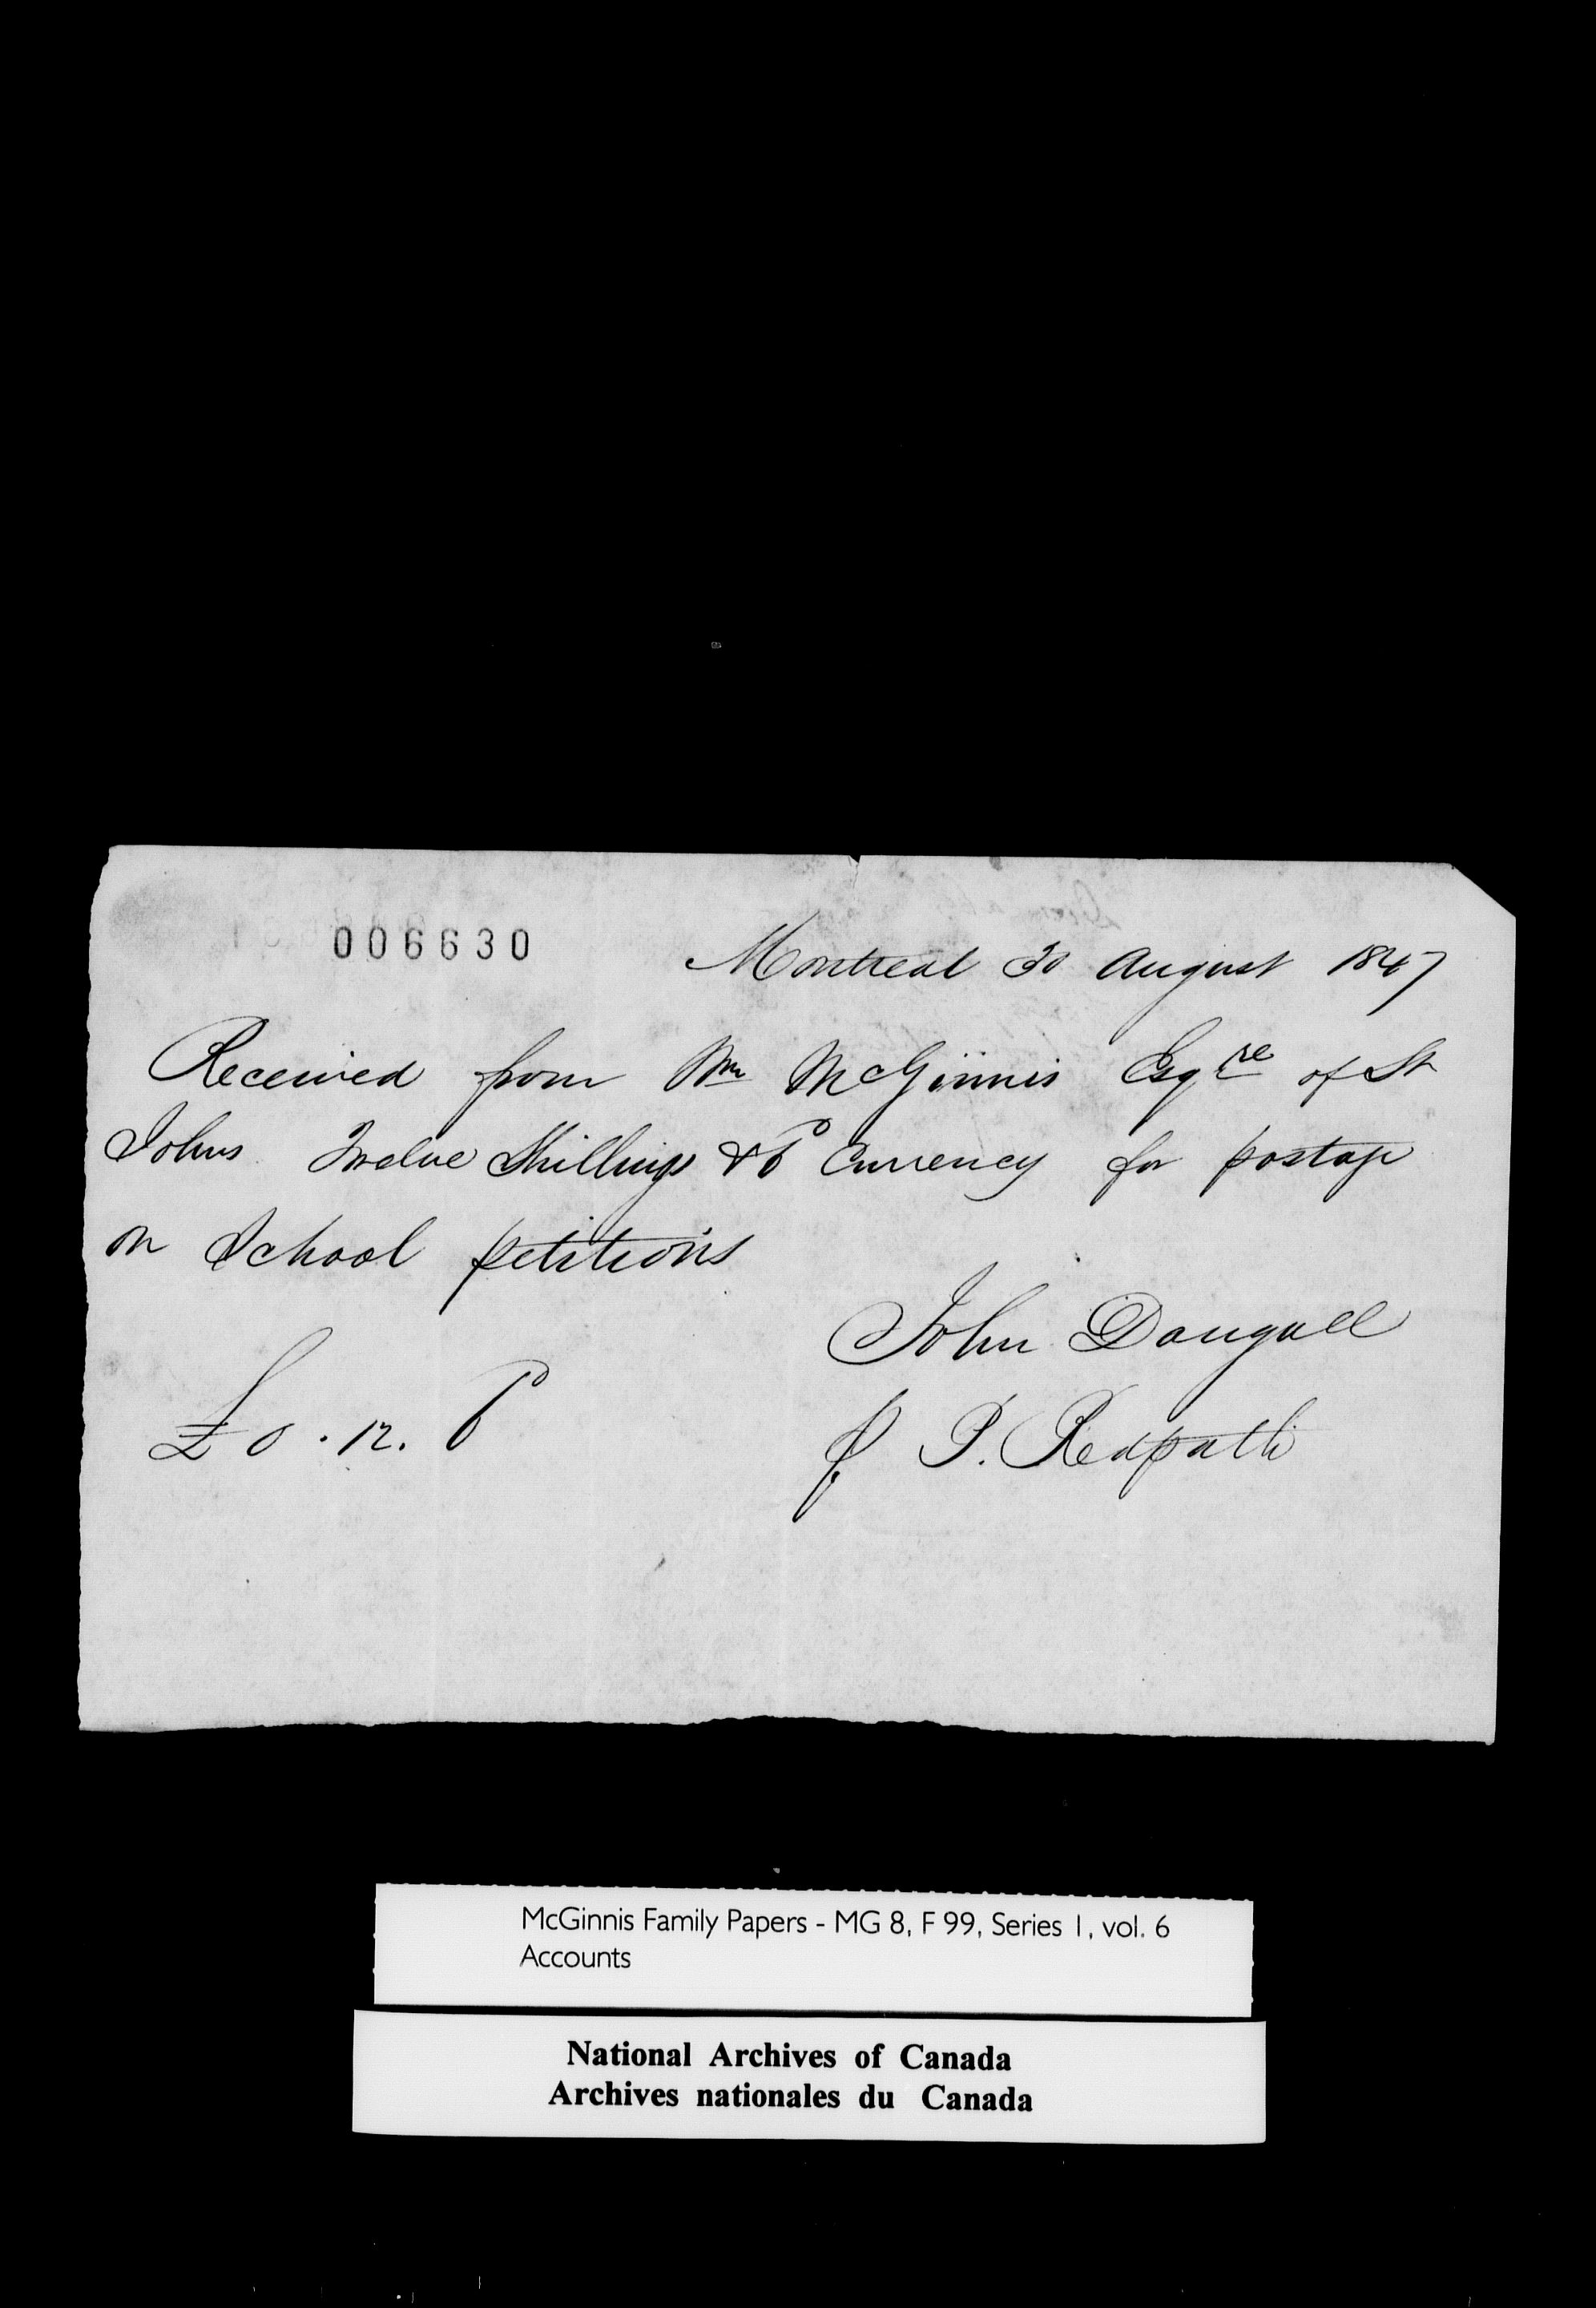 006630
Montreal 30 August 1847
Received from Wm McGinnis Esqre of St
Johns Twelve Shillings & 6d Currency for postage
on School petitions
John Dougall
p P. Redpath
£0.12.6d
McGinnis Family Papers - MG 8, F 99, Series 1, vol. 6
Accounts
National Archives of Canada
Archives nationales du Canada